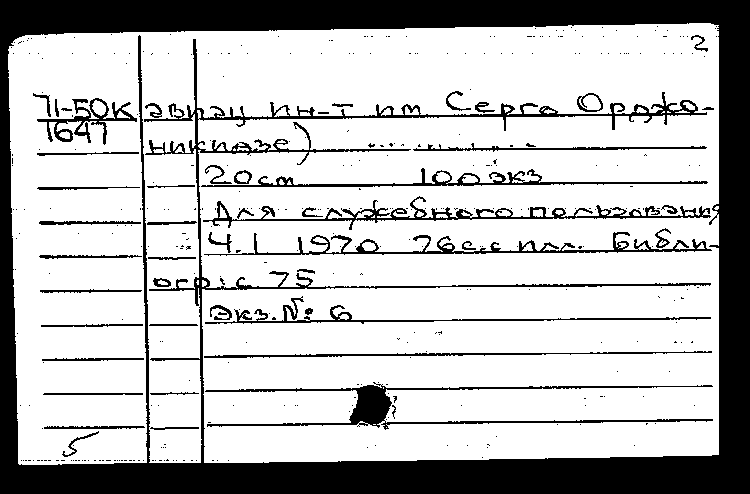 2
71-50К авиац ин-т им Серго Орджо-
1647 никидзе)
20см 100экз
Для служебного пользования
Ч.1 1970 76с.с илл. Библи-
огр: с 75
Экз. № 6
5